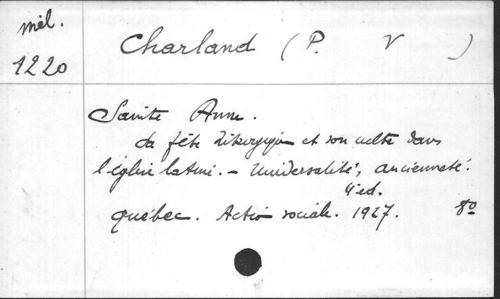 mél.
1220
Charland (P. V )
Sainte Anne.
La fête liturgique et son culte dans
l'église latine. – Universalité, ancienneté.
4e ed.
Québec. Action sociale. 1927. 8o